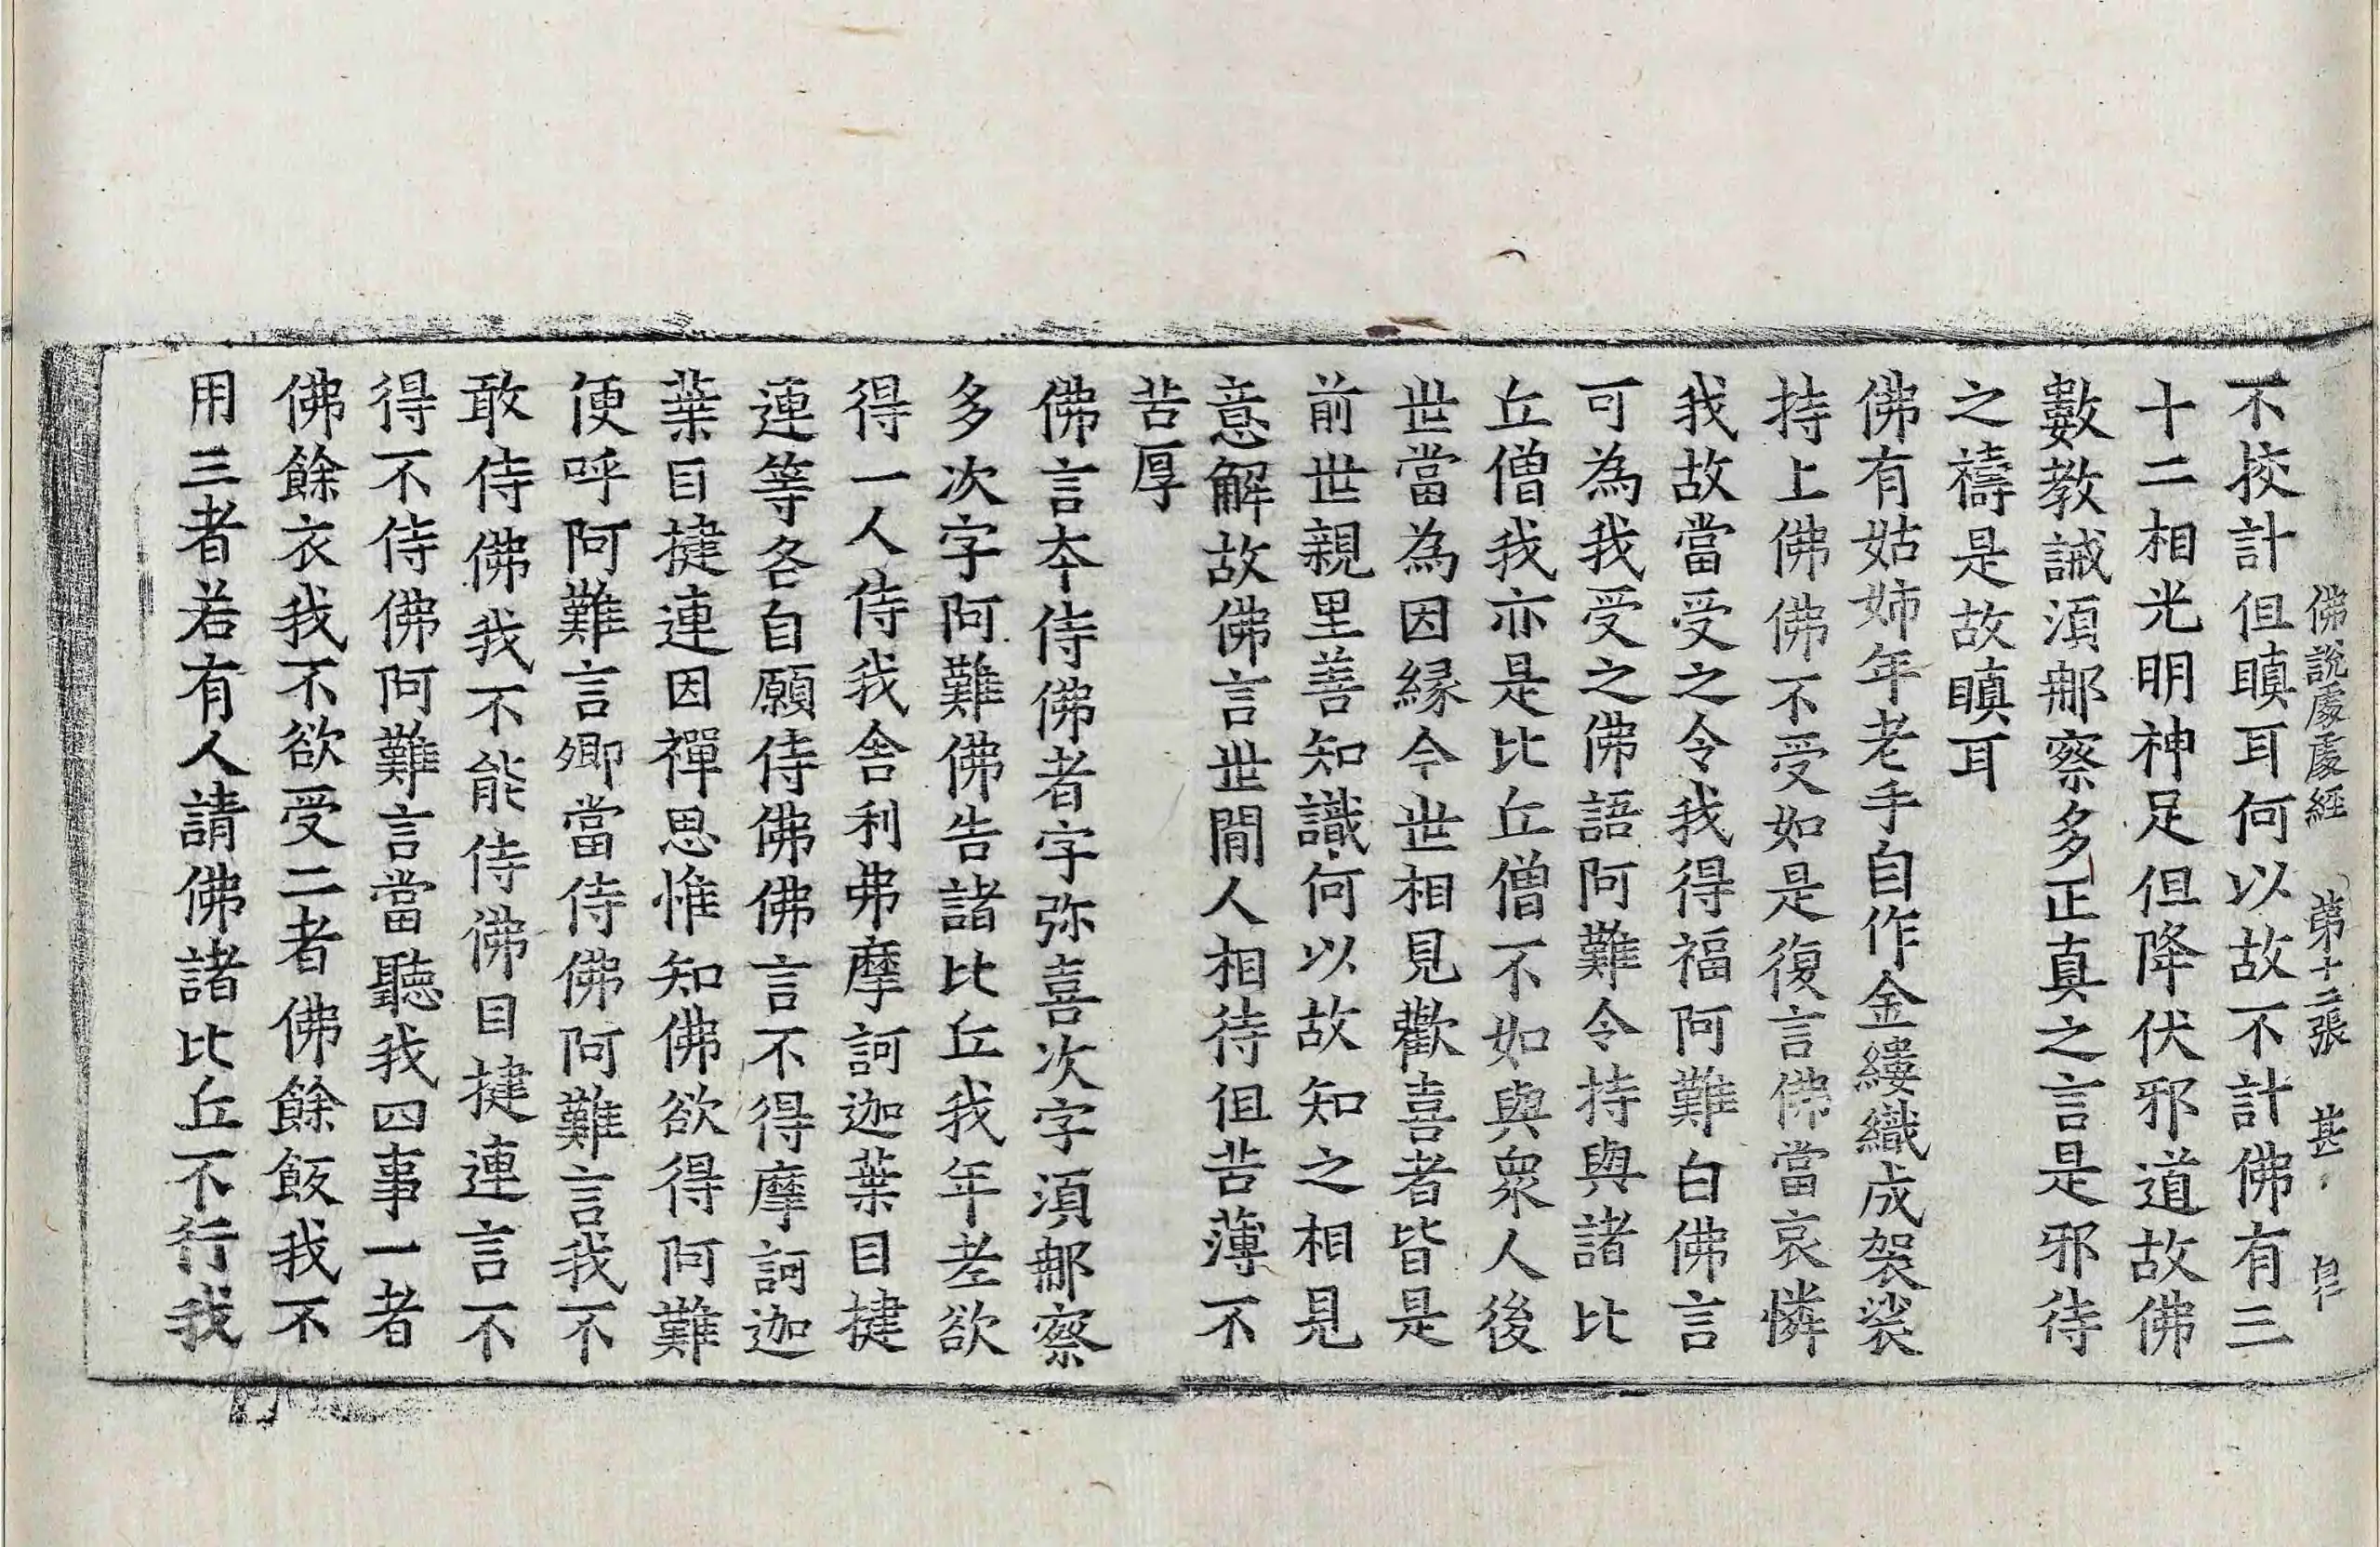 佛說處處經 第十二張 甚
不挍計但瞋耳何以故不計佛有三
十二相光明神足但降伏邪道故佛
數教誡湏郍察多正真之言是邪待
之禱是故瞋耳
佛有姑姊年老手自作金縷織成袈裟
持上佛佛不受如是復言佛當哀憐
我故當受之令我得福阿難白佛言
可為我受之佛語阿難令持與諸比
丘僧我亦是比丘僧不如與衆人後
世當為因縁今世相見歡喜者皆是
前世親里善知識何以故知之相見
意解故佛言世間人相待但苦薄不
苦厚
佛言夲侍佛者字弥喜次字湏郍察
多次字阿難佛告諸比丘我年老欲
得一人侍我舍利弗摩訶迦葉目揵
連等各自願侍佛佛言不得摩訶迦
葉目揵連因禪思惟知佛欲得阿難
便呼阿難言卿當侍佛阿難言我不
敢侍佛我不能侍佛目揵連言不
得不侍佛阿難言當聽我四事一者
佛餘衣我不欲受二者佛餘飯我不
用三者若有人請佛諸比丘不行我